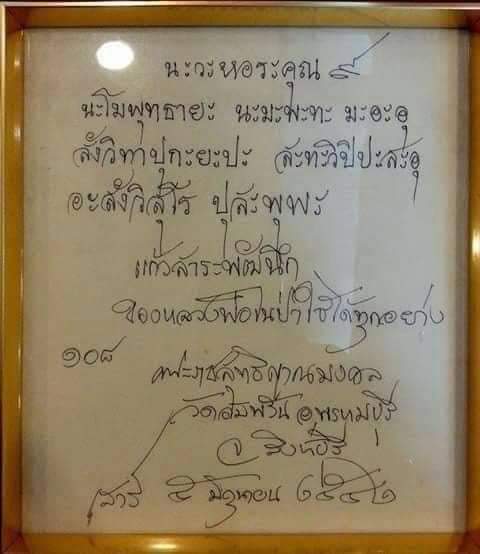 นะวะหอระคุณ ๙
นะโมพุทธายะ นะมะพะทะ มะอะอุ
สังวิทาปุกะยะปะ สะทะวิปิปะสะอุ
อะสังวิสุโร ปุสะพุพะ
แก้วสาระพัดนึก
ของหลวงพ่อในป่าใช้ได้ทุกอย่าง
๑๐๘
พระราชสุทธิญาณมงคล
วัดอัมพวัน อ.พรหมบุรี
จ. สิงห์บุรี
เสาร์ ๕ มิถุนายน